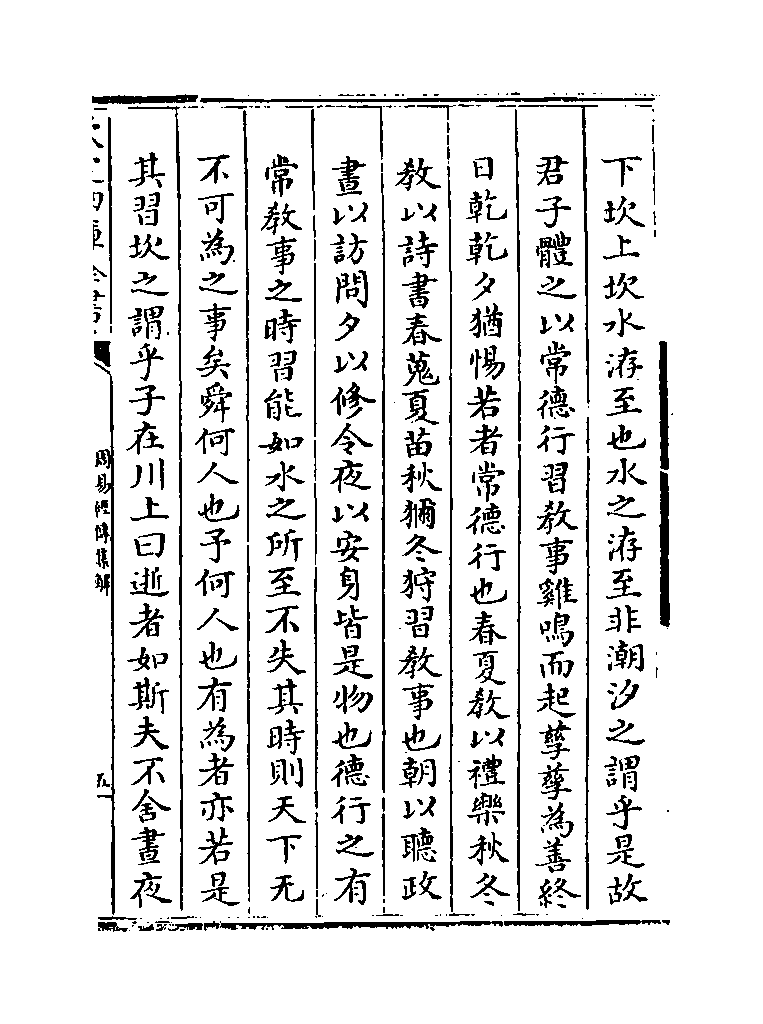 下坎上坎水洊至也水之洊至非潮汐之謂乎是故
君子體之以常德行習教事雞鳴而起孳孳為善終
日乾乾夕猶惕若者常德行也春夏教以禮樂秋冬
教以詩書春蒐夏苗秋獮冬狩習教事也朝以聽政
晝以訪問夕以修令夜以安身皆是物也德行之有
常教事之時習能如水之所至不失其時則天下无
不可為之事矣舜何人也予何人也有為者亦若是
其習坎之謂乎子在川上曰逝者如斯夫不舍晝夜
周易經傳集解
五